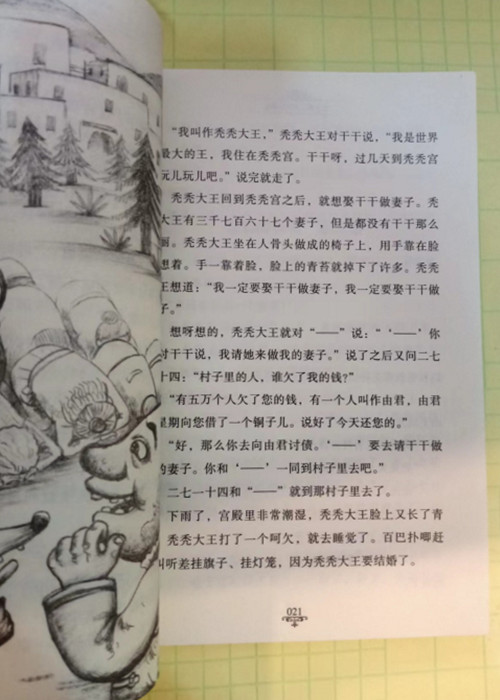 “我叫作秃秃大王，”秃秃大王对干干说，“我是世界
最大的王，我住在秃秃宫。干干呀，过几天到秃秃宫
玩儿玩儿吧。”说完就走了。
秃秃大王回到秃秃宫之后，就想娶干干做妻子。秃
大王有三千七百六十七个妻子，但是都没有干干那么
丽。秃秃大王坐在人骨头做成的椅子上，用手靠在脸
想着。手一靠着脸，脸上的青苔就掉下了许多。秃秃
王想道：“我一定要娶干干做妻子，我一定要娶干干做
子。”
想呀想的，秃秃大王就对“——”说：“‘——’你
对干干说，我请她来做我的妻子。”说了之后又问二七
十四：“村子里的人，谁欠了我的钱？”
“有五万个人欠了您的钱，有一个人叫作由君，由君
星期向您借了一个铜子儿。说好了今天还您的。”
“好，那么你去向由君讨债。‘——’要去请干干做
的妻子。你和‘——’一同到村子里去吧。”
二七一十四和“——”就到那村子里去了。
下雨了，宫殿里非常潮湿，秃秃大王脸上又长了青
秃秃大王打了一个呵欠，就去睡觉了。百巴扑唧赶
叫听差挂旗子、挂灯笼，因为秃秃大王要结婚了。
021